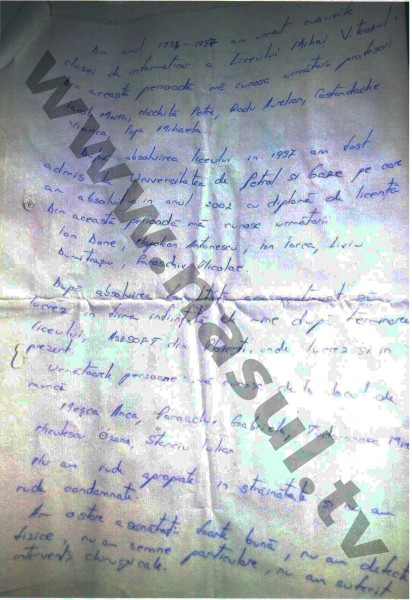 Din anul 1993-1997 am urmat cursurile
clasei de informatică a Liceului Mihai Viteazul.
Din această perioadă mă cunosc următorii profesori
Maria, Nechita Petre, Radu Aurelian, Costandache
Viorica, Mihaela.
După absolvirea liceului în 1997 am fost
admis la Universitatea de Petrol și Gaze pe care
am absolvit-o în anul 2002 cu diplomă de licență
Din această perioadă mă cunosc următorii
Ion Done, Napoleon Antonescu, Ion Lurcea, Liviu
Dumitrașcu, Paraschiv Nicolae.
După absolvirea am continuat să
lucrez în firma înființată de mine după terminarea
liceului, ASESOFT din Ploiești, unde lucrez și în
prezent.
Următoarele persoane mă cunosc de la locul de
muncă
Anca, Paraschiv
Niculescu Ozana, Stanciu Iulian
Nu am rude apropiate în străinătate și nu am
rude condamnate.
Am o stare a sănătății foarte bună, nu am defecte
fizice, nu am semne particulare, nu am suferit
intervenții chirurgicale.
www.nasul.tv